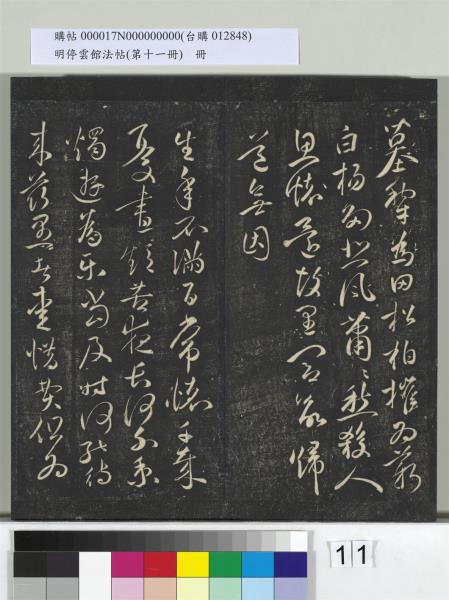 購帖 000017N000000000(台購 012848)
明停雲館法帖(第十一冊) 冊
墓犁為田松柏摧為薪
白楊多悲風蕭〻愁殺人
思懷還故里閭欲歸
道無因
生年不滿百常懷千歲
憂晝短苦夜長何不秉
燭遊為樂當及時何能待
來茲愚者愛惜費但為
11